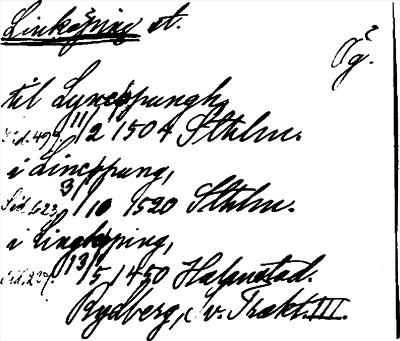 Linköping st.
Ög.
til Lyncøpungh,
Sid. 499. 11/2 1504 Sthlm.
i Lincøpung,
Sid. 623. 3/10 1520 Sthlm.
i Lingköping,
13/5 1450 Halmstad.
Rydberg, Sv. Trakt. III.